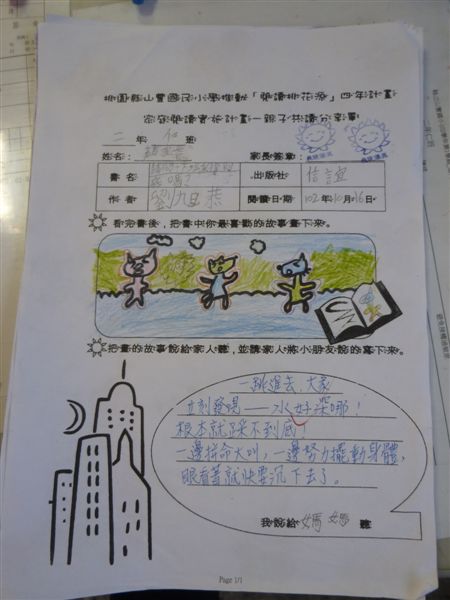 桃園縣山豐國民小學推動「閱讀桃花源」四年計畫
家庭閱讀實施計畫—親子共讀分享單
二年仁班
姓名: 家長簽章:
書名 出版社 信誼
作者 劉旭恭 閱讀日期 102年10月16日
看完書後,把書中你最喜歡的故事畫下來。
把書的故事說給家人聽,並請家人將小朋友說的寫下來。
一跳進去,大家
立刻發現——水好深哪!
根本就踩不到底!
一邊拚命大叫,一邊努力擺動身體,
眼看著就快要沉下去了。
我說給媽媽聽
Page 1/1